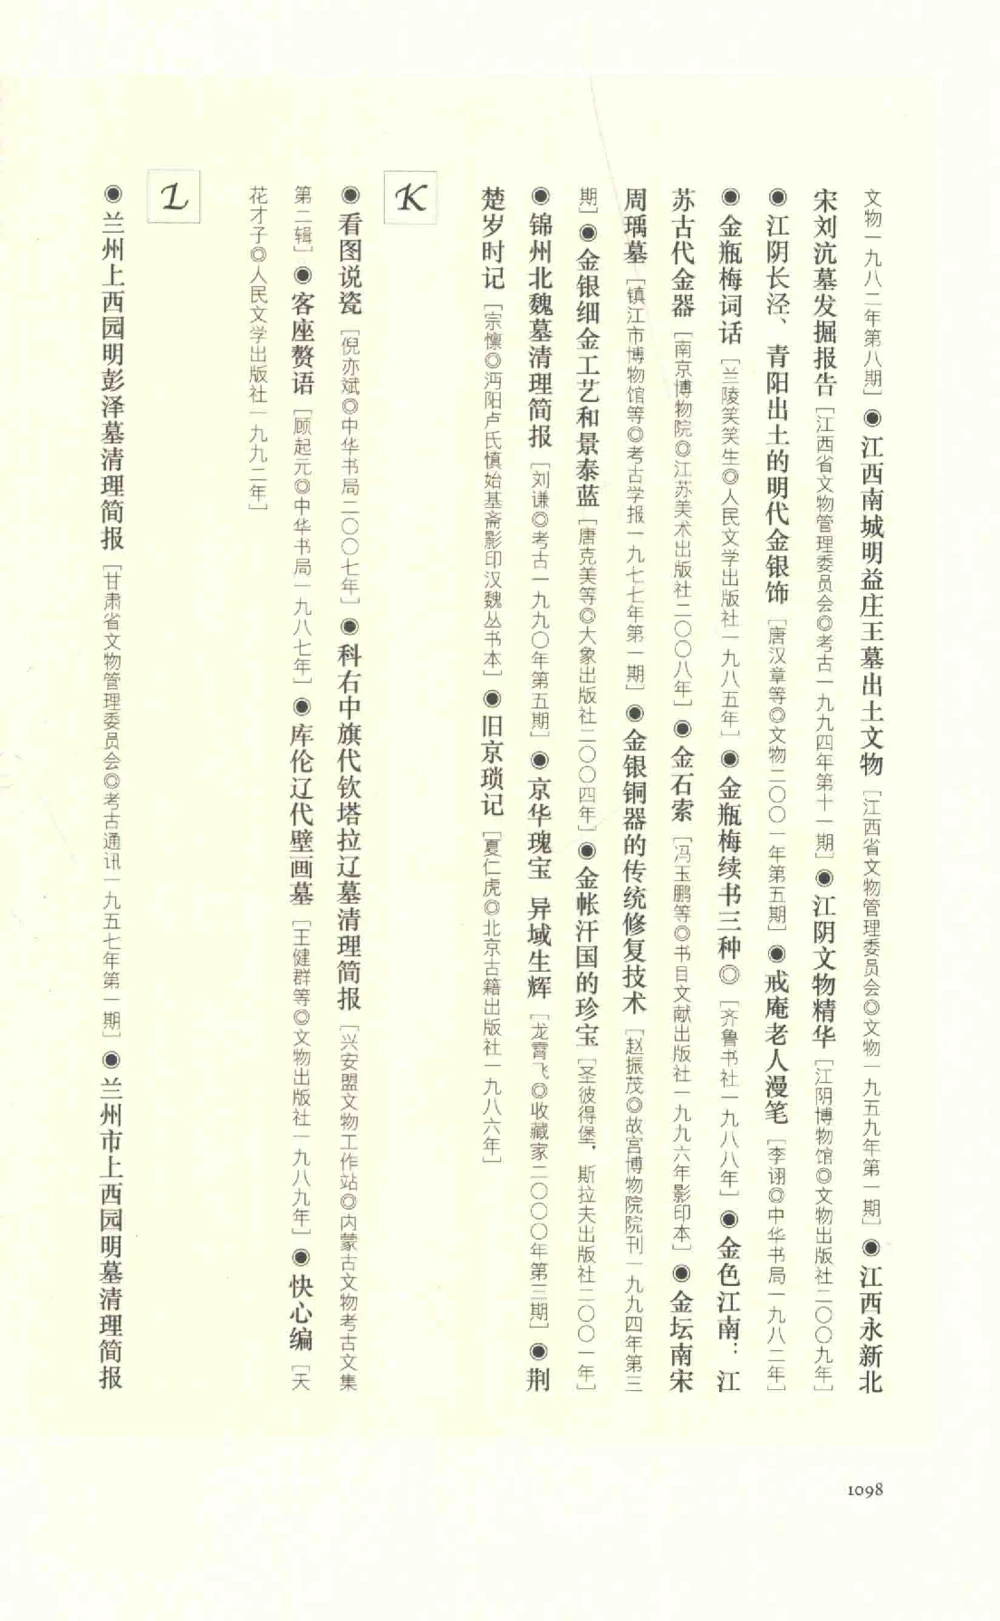 文物一九八二年第八期］◉江西南城明益庄王墓出土文物［江西省文物管理委员会◎文物一九五九年第一期］◉江西永新北
宋刘沆墓发掘报告［江西省文物管理委员会◎考古一九九四年第十一期］◉江阴文物精华［江阴博物馆◎文物出版社二〇〇九年］
◉江阴长泾、青阳出土的明代金银饰［唐汉章等◎文物二〇〇一年第五期］◉戒庵老人漫笔［李诩◎中华书局一九八二年］
◉金瓶梅词话［兰陵笑笑生◎人民文学出版社一九八五年］◉金瓶梅续书三种◎［齐鲁书社一九八八年］◉金色江南：江
苏古代金器［南京博物院◎江苏美术出版社二〇〇八年］◉金石索［冯玉鹏等◎书目文献出版社一九九六年影印本］◉金坛南宋
周瑀墓［镇江市博物馆等◎考古学报一九七七年第一期］◉金银铜器的传统修复技术［赵振茂◎故宫博物院院刊一九九四年第三
期］◉金银细金工艺和景泰蓝［唐克美等◎大象出版社二〇〇四年］◉金帐汗国的珍宝［圣彼得堡，斯拉夫出版社二〇〇一年］
◉锦州北魏墓清理简报［刘谦◎考古一九九〇年第五期］◉京华瑰宝 异域生辉［龙霄飞◎收藏家二〇〇〇年第三期］◉荆
楚岁时记［宗懔◎沔阳卢氏慎始基斋影印汉魏丛书本］◉旧京琐记［夏仁虎◎北京古籍出版社一九八六年］
K
◉看图说瓷［倪亦斌◎中华书局二〇〇七年］◉科右中旗代钦塔拉辽墓清理简报［兴安盟文物工作站◎内蒙古文物考古文集
第二辑］◉客座赘语［顾起元◎中华书局一九八七年］◉库伦辽代壁画墓［王健群等◎文物出版社一九八九年］◉快心编［天
花才子◎人民文学出版社一九九二年］
L
◉兰州上西园明彭泽墓清理简报［甘肃省文物管理委员会◎考古通讯一九五七年第一期］◉兰州市上西园明墓清理简报
1098